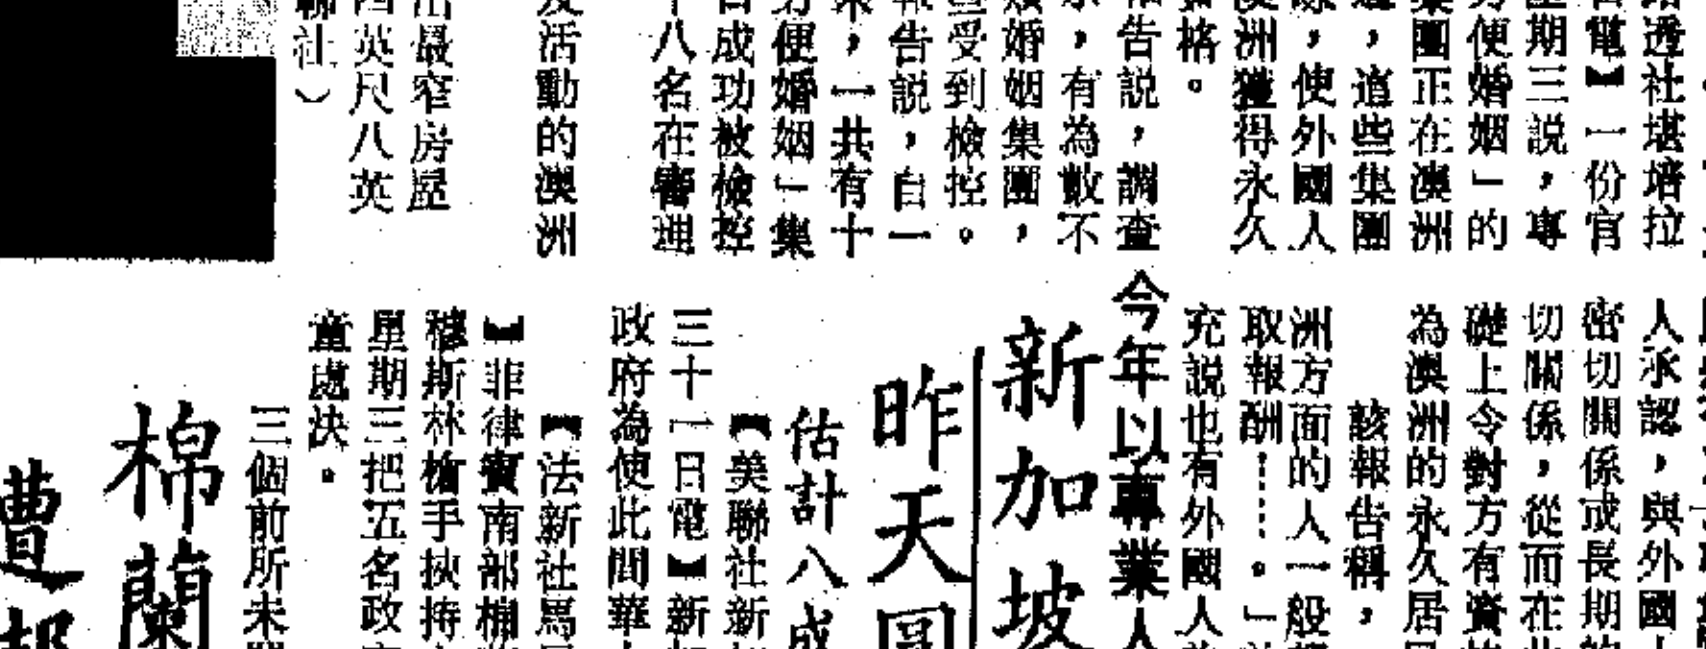 路透社堪培拉
電】一份官
星期三説，專
方便婚姻」的
集團正在澳洲
，這些集團
，使外國人
澳洲獲得永久
格。
告説，調查
，有為數不
婚姻集團，
受到檢控。
報告説，自一
，一共有十
方便婚姻」集
成功被檢控
十八名在審理
及活動的澳洲
出最窄房屋
四英尺八英
聯社）
人承認，與外國
密切關係或長期
切關係，從而在
礎上令對方有資
為澳洲的永久居
該報告稱，
洲方面的人一般
取報酬……。」
充説也有外國人
今年以專業人
新加坡
昨天國
估計八成
【美聯社新
三十一日電】新
政府為使此間華
【法新社馬
】菲律賓南部棉
穆斯林槍手挾持
星期三把五名政
童處決。
三個前所未
棉蘭
遭